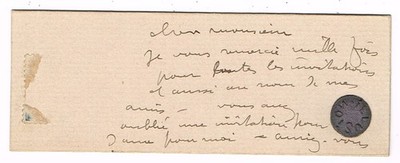 cher monsieur
je vous remercie mille fois
pour toutes les invitations
et aussi au nom de mes
amis – vous avez
oublié une invitation pour
Dame pour moi – auriez-vous